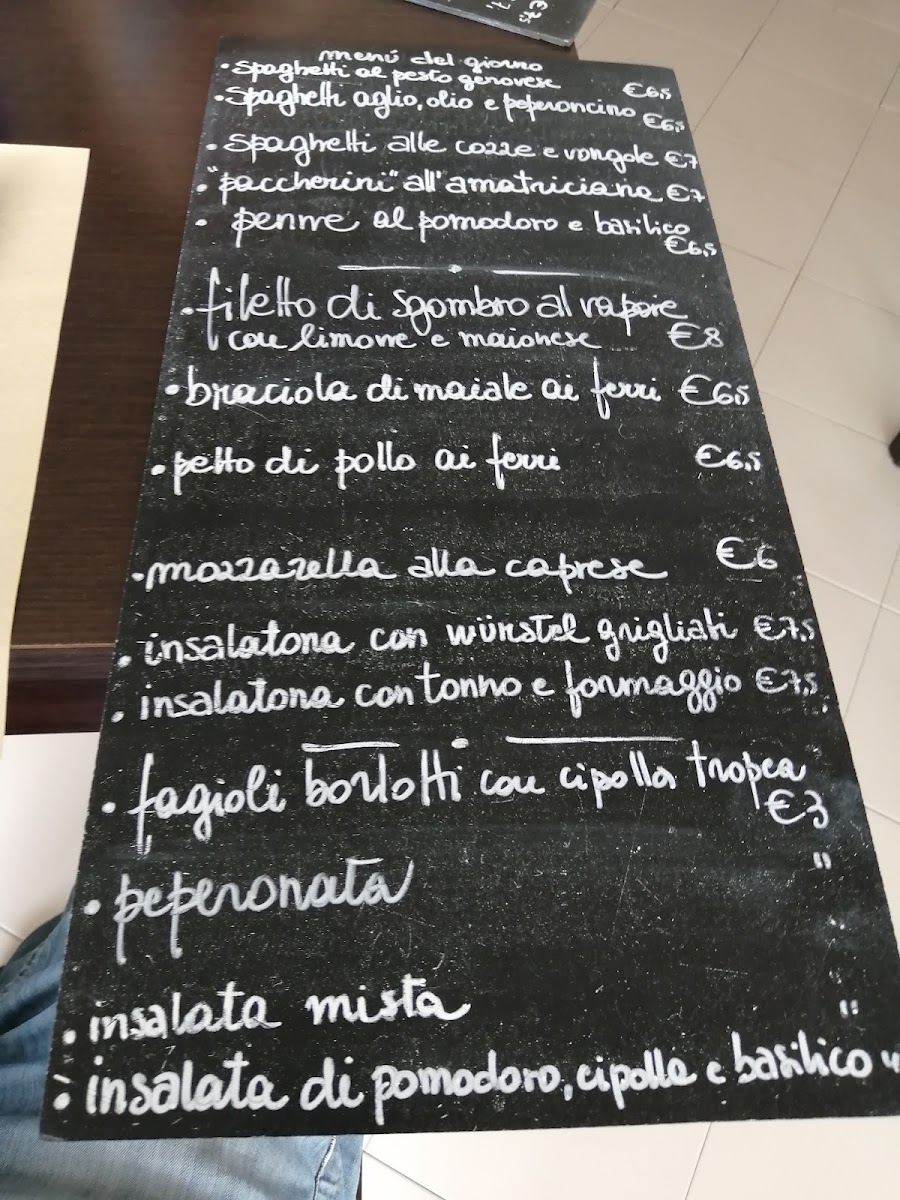 menú del giorno
• spaghetti al pesto genovese €6,5
• spaghetti aglio, olio e peperoncino €6,5
• spaghetti alle cozze e vongole €7
• "paccherini" all'amatriciana €7
• penne al pomodoro e basilico
€6,5
• filetto di sgombro al vapore
con limone e maionese €8
• braciola di maiale ai ferri €6,5
• petto di pollo ai ferri €6,5
• mozzarella alla caprese €6
• insalatona con würstel grigliati €7,5
• insalatona con tonno e formaggio €7,5
• fagioli borlotti con cipolla tropea
€3
• peperonata "
• insalata mista "
• insalata di pomodoro, cipolla e basilico "